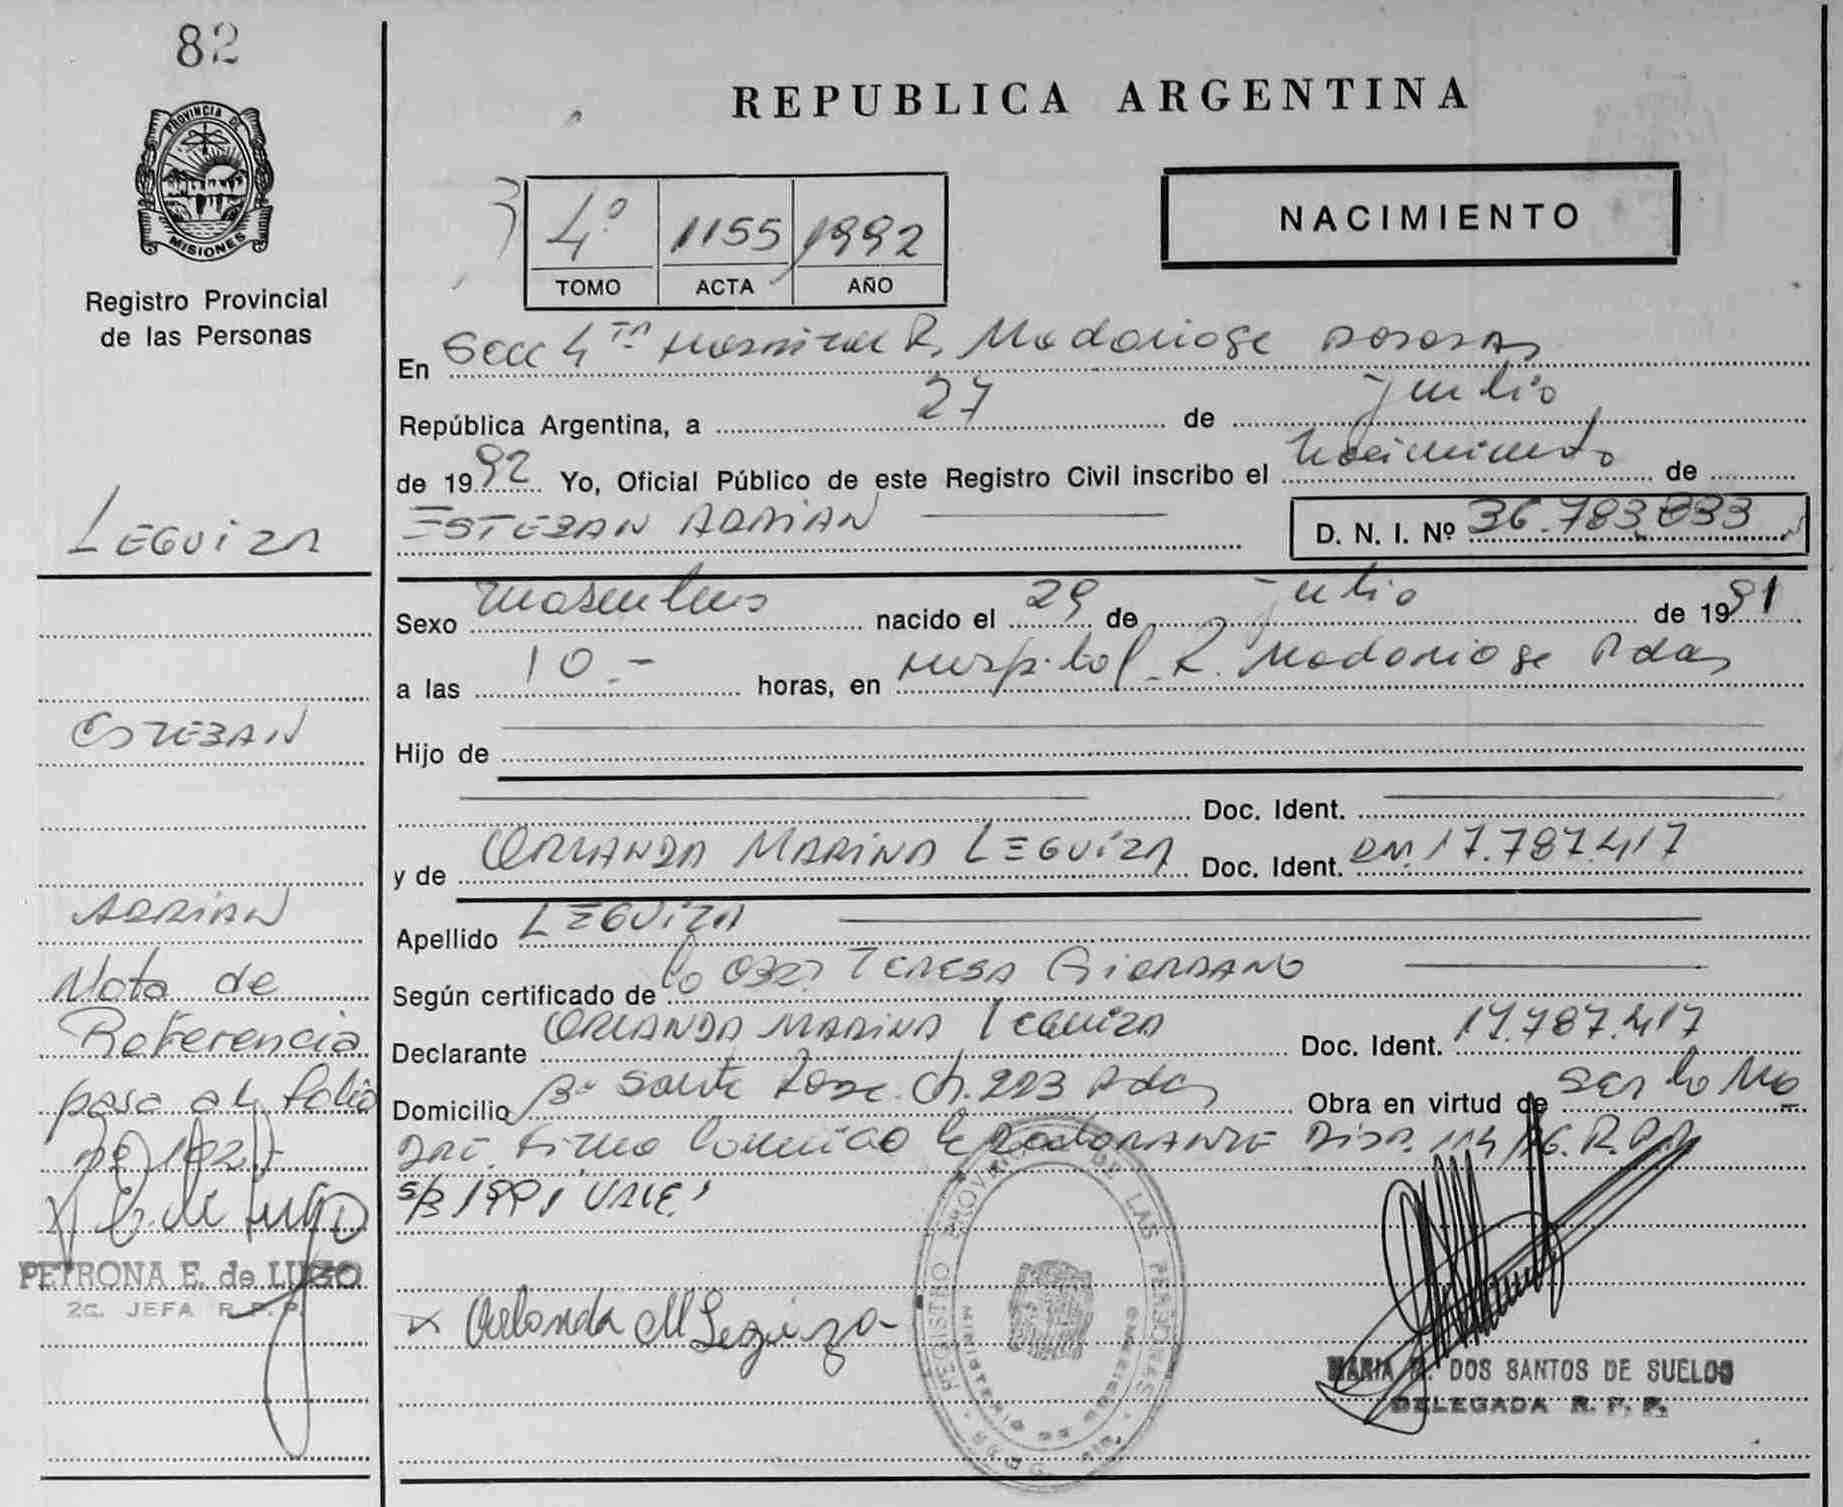 82
PROVINCIA DE
MISIONES
Registro Provincial
de las Personas
LEGUIZA
ESTEBAN
ADRIAN
Nota de
Referencia
pasa al folio
PETRONA E. de LUGO
2a. JEFA R.P.P.
REPUBLICA ARGENTINA
4º 1155 1992
TOMO ACTA AÑO
NACIMIENTO
En Secc 4ta Hospital R. Madariaga Posadas
República Argentina, a 27 de julio
de 1992 Yo, Oficial Público de este Registro Civil inscribo el nacimiento de
ESTEBAN ADRIAN D. N. I. Nº 36.783.833
Sexo masculino nacido el 29 de julio de 1991
a las 10.- horas, en Hospital R. Madariaga Pdas
Hijo de
Doc. Ident.
y de ORLANDA MARINA LEGUIZA Doc. Ident. 17.787.417
Apellido LEGUIZA
Según certificado de TERESA GIORDANO
Declarante ORLANDA MARINA LEGUIZA Doc. Ident. 17.787.417
Domicilio Bº Santa Rosa Ch. 223 Pdas Obra en virtud de ser la Ma
dre. Firma conmigo la declarante Disp.
s/B 1991 VALE
Orlanda M Leguiza
REGISTRO PROVINCIAL DE LAS PERSONAS
MINISTERIO DE GOBIERNO
MARIA DOS SANTOS DE SUELDO
DELEGADA R. P. P.